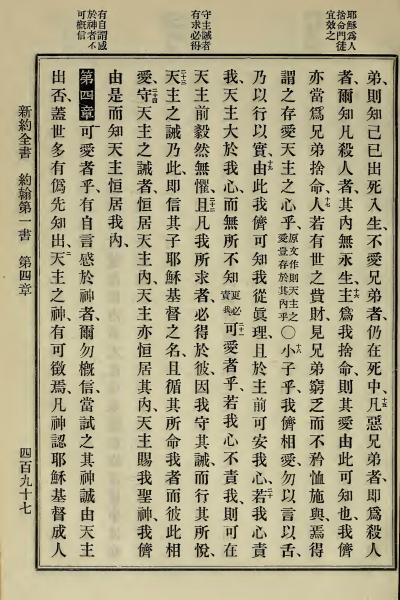 耶穌爲人
捨命門徒
宜效之
守主誡者
有求必得
有自謂感
於神者不
可槪信
弟、則知己已出死入生、不愛兄弟者、仍在死中、十五凡惡兄弟者、卽爲殺人
者、爾知凡殺人者、其內無永生、十六主爲我捨命、則其愛由此可知也、我儕
亦當爲兄弟捨命、十七人若有世之貲財、見兄弟窮乏、而不矜恤施與、焉得
謂之存愛天主之心乎、原文作則天主之愛豈存於其內乎〇十八小子乎、我儕相愛、勿以言以舌、
乃以行以實、十九由此我儕可知我從眞理、且於主前可安我心、二十若我心責
我、天主大於我心、而無所不知、更必責我二十一可愛者乎、若我心不責我、則可在
天主前毅然無懼、二十二且凡我所求者、必得於彼、因我守其誡、而行其所悅、
二十三天主之誡乃此、卽信其子耶穌基督之名、且循其所命我者、而彼此相
愛、二十四守天主之誡者、恒居天主內、天主亦恒居其內、天主賜我聖神、我儕
由是而知天主恒居我內、
第四章 可愛者乎、有自言感於神者、爾勿槪信、當試之其神誠由天主
出否、蓋世多有僞先知出、二天主之神有可徵焉、凡神認耶穌基督成人
新約全書 約翰第一書 第四章 四百九十七